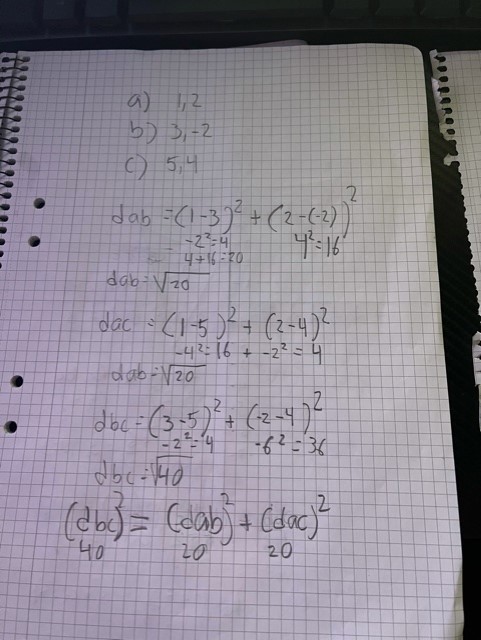 a) 1,2
b) 3,-2
c) 5,4
dab = (1-3)² + (2-(-2))²
-2²=4 4²=16
4+16=20
dab=√20
dac = (1-5)² + (2-4)²
-4²=16 + -2² = 4
dab=√20
dbc=(3-5)² + (-2-4)²
-2²=4 -6²=36
dbc=√40
(dbc)² = (dab)² + (dac)²
40 20 20